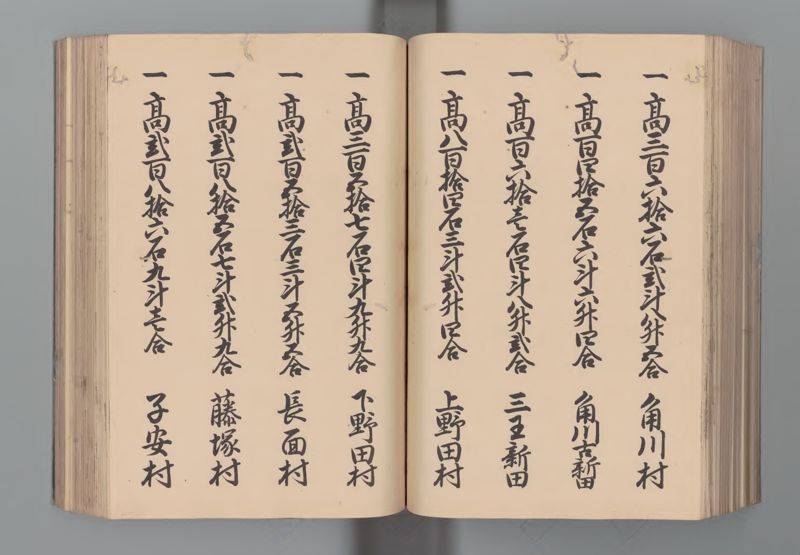 一 高三百六拾六石弐斗八升五合 角川村
一 高百四拾五石六斗六升四合 角川古新田
一 高百六拾壱石四斗八升弐合 三王新田
一 高八百拾四石三斗弐升四合 上野田村
一 高三百五拾七石四斗九升九合 下野田村
一 高弐百五拾三石三斗五升五合 長面村
一 高弐百八拾五石七斗弐升九合 藤塚村
一 高弐百八拾六石九斗壱合 子安村